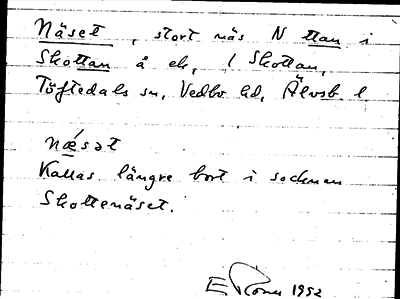 Näset, stort näs N ttan i
Skottan å ek, l Skottan,
Töftedals sn, Vedbo hd, Älvsb. l.
næ´sət
Kallas längre bort i socknen
Skottenäset.
E 1952